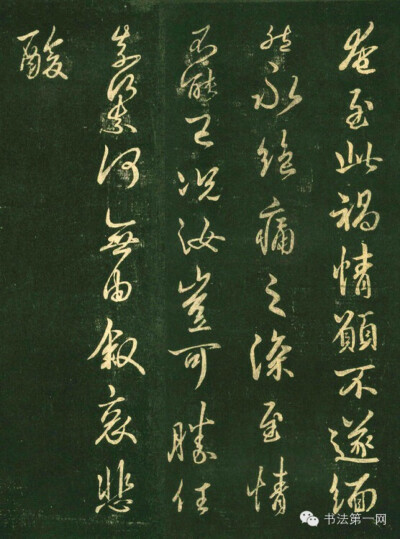 奄至此禍情願不遂緬
然永絕痛之深至情
不能已況汝豈可勝任
奈何奈何無由叙哀悲
酸
书法第一网